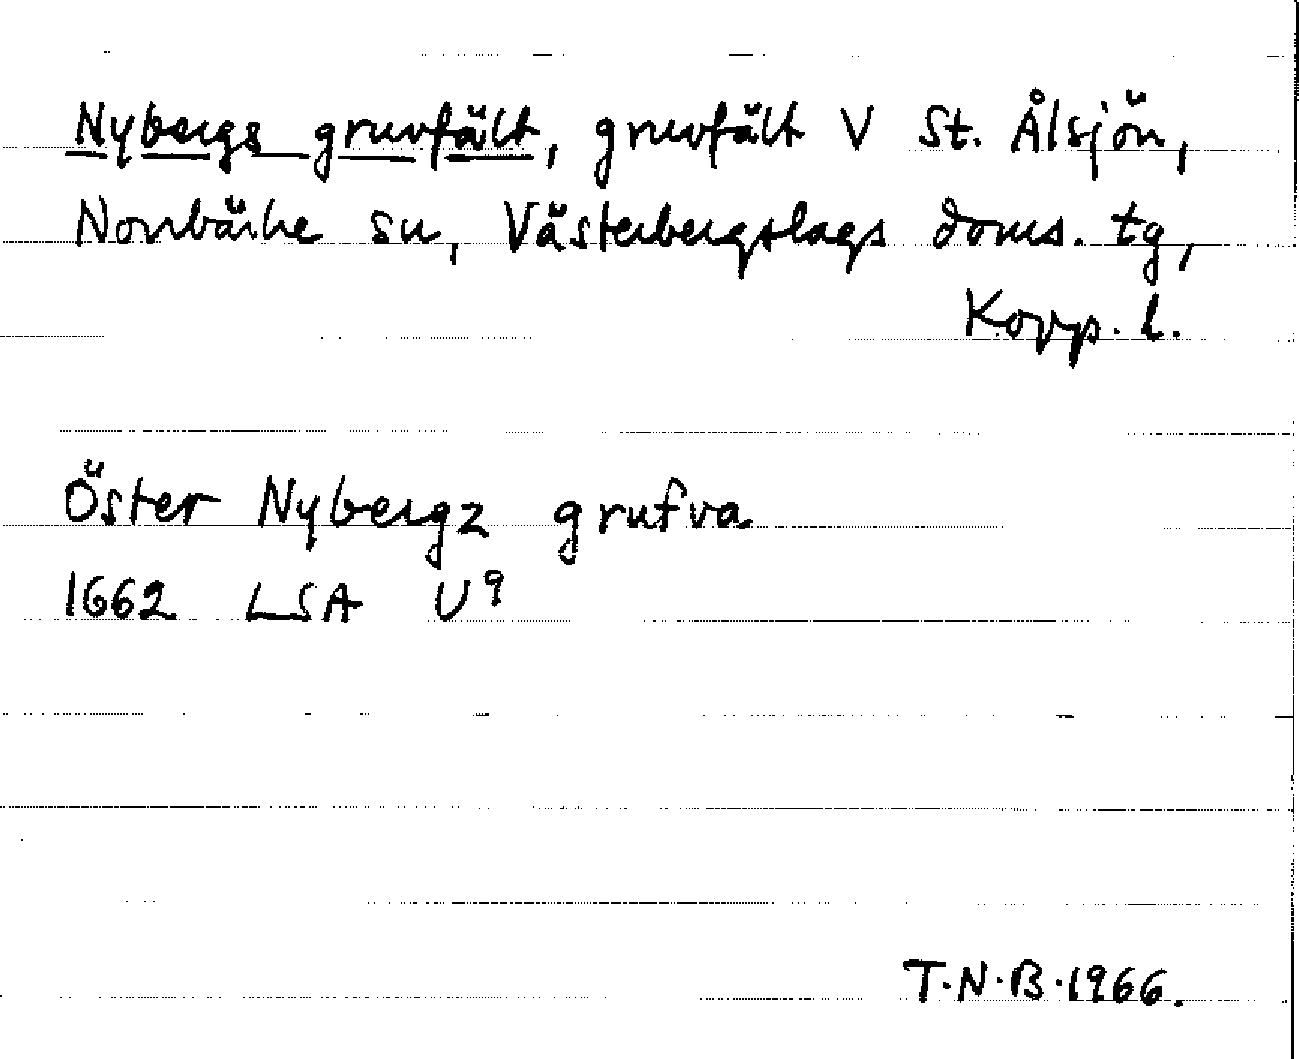 Nybergs gruvfält, gruvfält V St. Ålsjön,
Norrbärke sn, Västerbergslags doms. tg,
Kopp. l.
Öster Nybergz grufva
1662 LSA U9
T.N.B.1966.